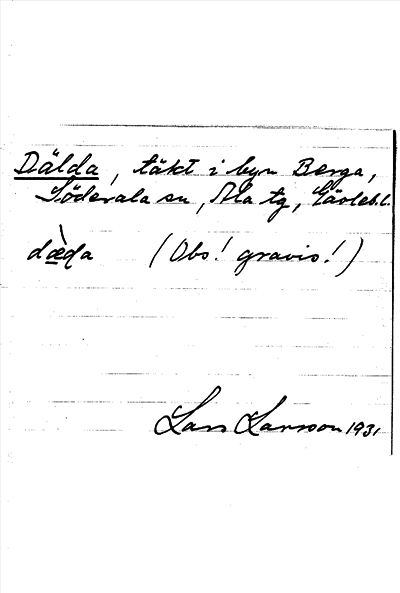 Dälda, täkt i byn Berga,
Söderala sn, Ala tg, Gävleb. l.
dæ̀ḍa (Obs! gravis!)
Lars Larsson 1931